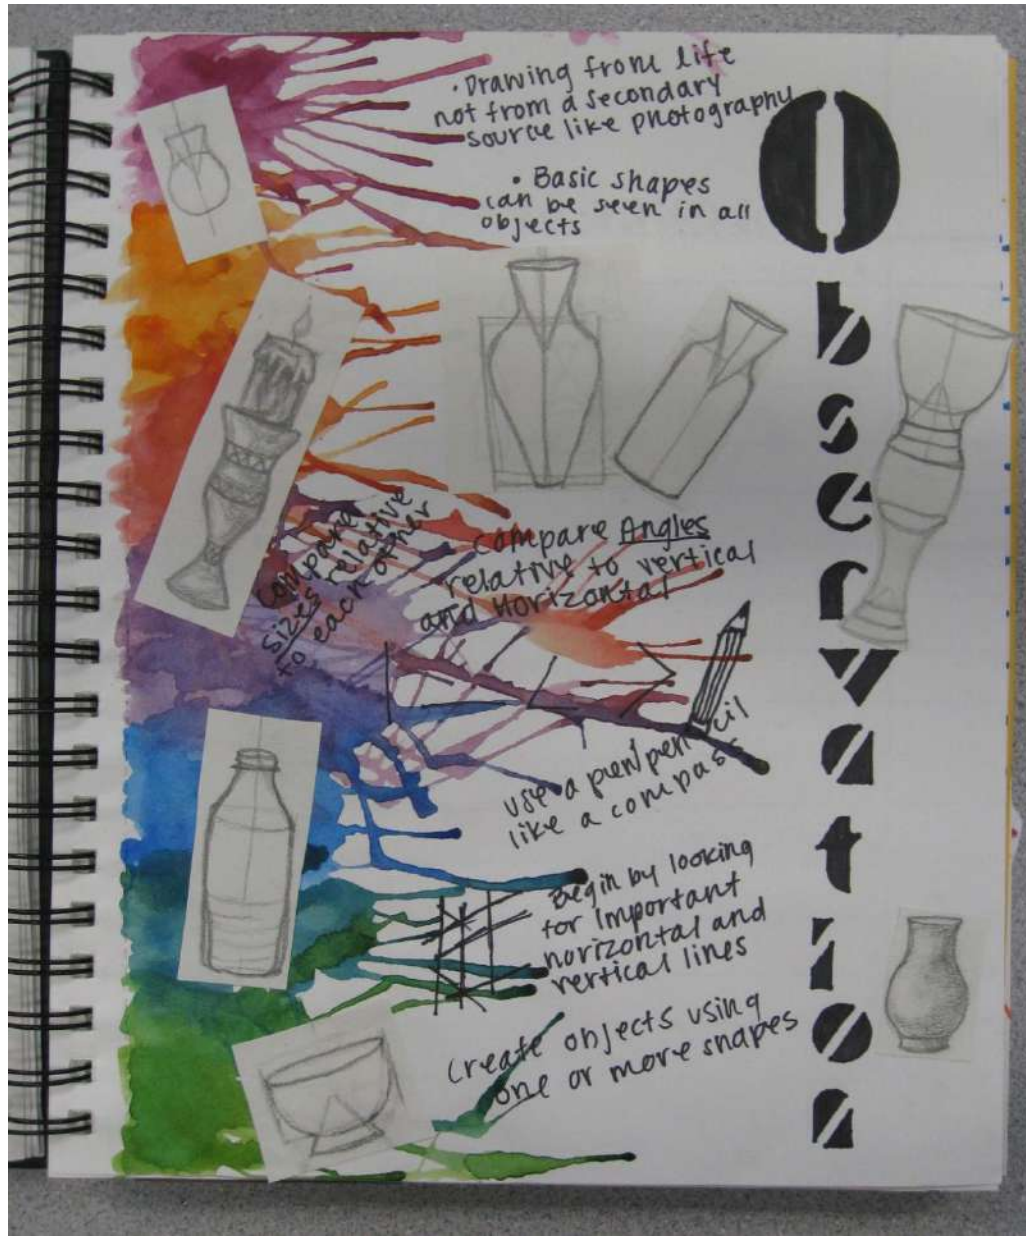 • Drawing from life
not from a secondary
source like photography
• Basic shapes
can be seen in all
objects
Observation
compare
sizes relative
to each other
compare Angles
relative to vertical
and Horizontal
use a pen/pencil
like a compass
Begin by looking
for Important
horizontal and
vertical lines
Create objects using
one or more shapes